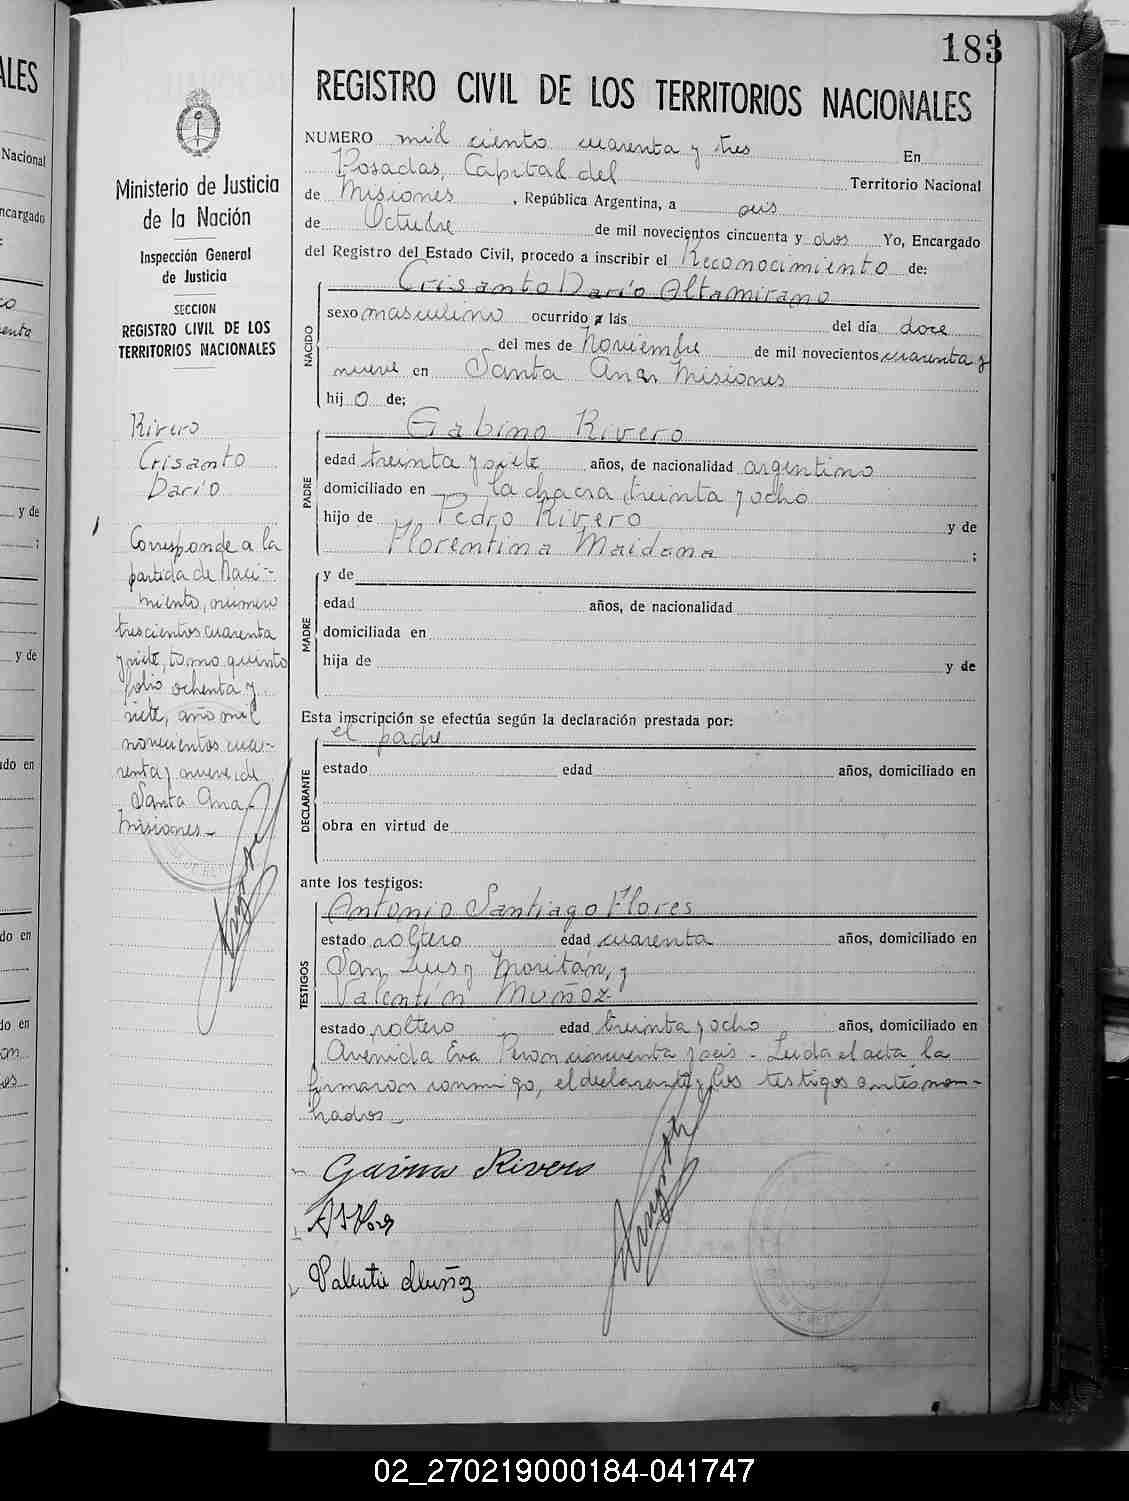 183
REGISTRO CIVIL DE LOS TERRITORIOS NACIONALES
NUMERO mil ciento cuarenta y tres En
Posadas, Capital del Territorio Nacional
de Misiones, República Argentina, a seis
de Octubre de mil novecientos cincuenta y dos Yo, Encargado
del Registro del Estado Civil, procedo a inscribir el Reconocimiento de:
Crisanto Dario Altamirano
NACIDO
sexo masculino ocurrido a las del día doce
del mes de Noviembre de mil novecientos cuarenta y
nueve en Santa Ana Misiones
hij o de;
Gabino Rivero
PADRE
edad treinta y siete años, de nacionalidad argentino
domiciliado en la chacra treinta y ocho
hijo de Pedro Rivero y de
Florentina Maidana ;
MADRE
y de
edad años, de nacionalidad
domiciliada en
hija de y de
Esta inscripción se efectúa según la declaración prestada por:
el padre
DECLARANTE
estado edad años, domiciliado en
obra en virtud de
ante los testigos:
Antonio Santiago Flores
TESTIGOS
estado soltero edad cuarenta años, domiciliado en
San Luis y Moritán, y
Valentín Muñoz
estado soltero edad treinta y ocho años, domiciliado en
Avenida Eva Peron cincuenta y seis - Leida el acta la
firmaron conmigo, el declarante y los testigos antes nom-
brados
Rivero
Valentin Muñoz
Ministerio de Justicia
de la Nación
Inspección General
de Justicia
SECCION
REGISTRO CIVIL DE LOS
TERRITORIOS NACIONALES
Rivero
Crisanto
Dario
Corresponde a la
partida de Naci-
miento, número
trescientos cuarenta
y siete, tomo quinto
folio ochenta y
siete, año mil
novecientos cuar-
renta y nueve, de
Santa Ana,
Misiones-
ALES
Nacional
ncargado
y de
y de
do en
do en
do en
02_270219000184-041747